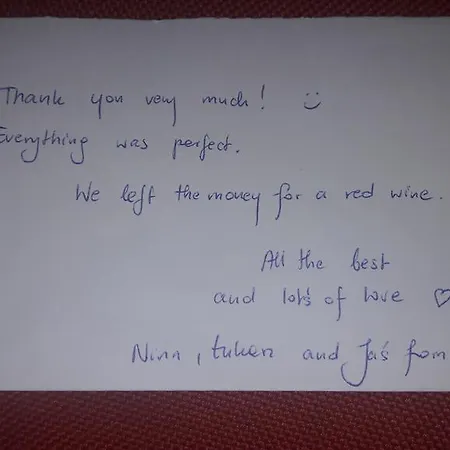 Thank you very much! :)
Everything was perfect.
We left the money for a red wine.
All the best
and lots of love ♡
Nina, and Jaš